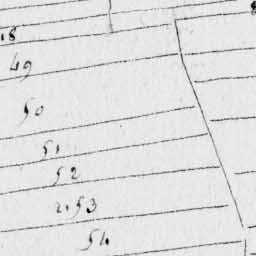 18
49
50
51
52
2.53
54